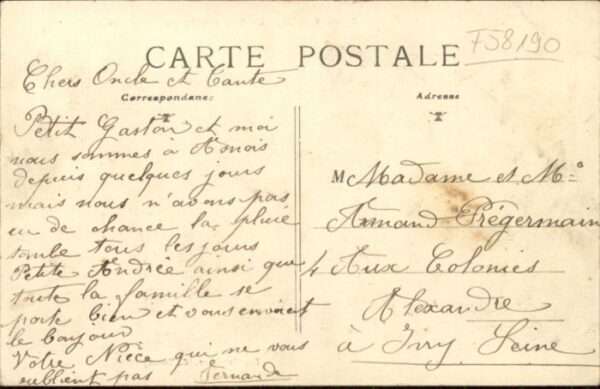 758/90
CARTE POSTALE
Chers Oncle et Tante
Correspondance
Adresse
Petit Gaston et moi
nous sommes à
depuis quelques jours
mais nous n'avons pas
eu de chance la pluie
tombe tous les jours
Petite Andrée ainsi que
toute la famille se
porte bien et vous envoient
le bonjour
Votre Nièce qui ne vous
oublient pas Fernande
M Madame et Mr
Armand Prégermain
4 Aux Colonies
Alexandre
à Ivry Seine